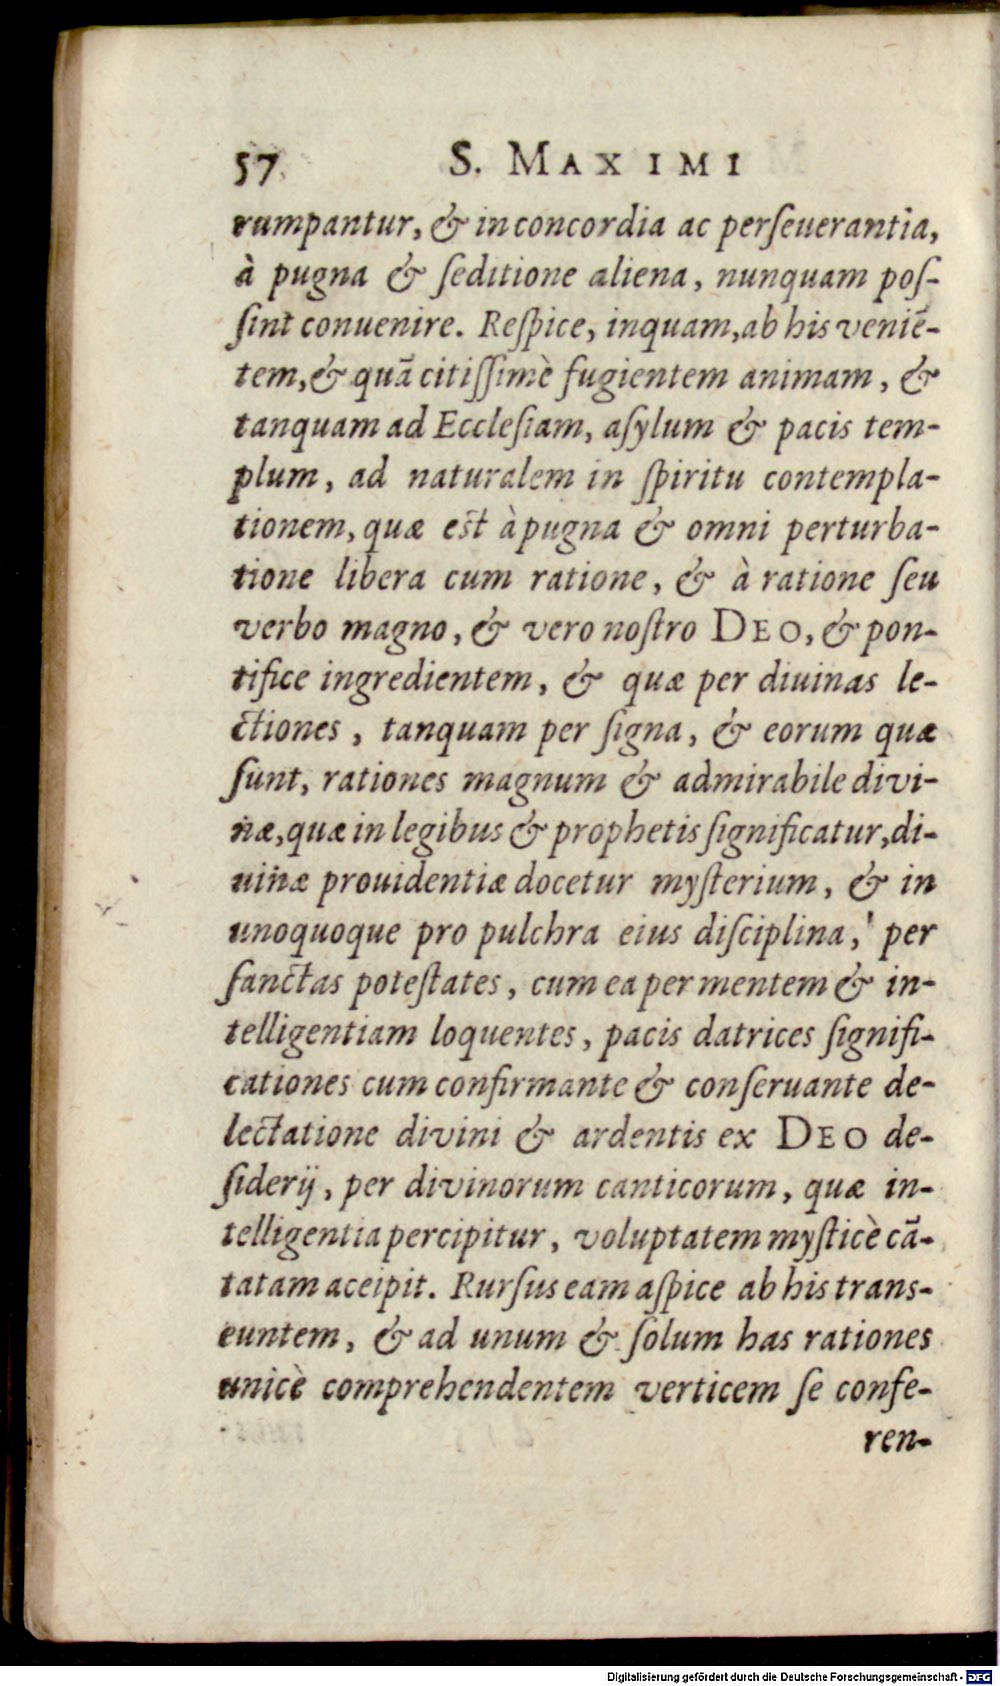 57 S. MAXIMI
rumpantur, & in concordia ac perſeuerantia,
à pugna & ſeditione aliena, nunquam poſ-
ſint conuenire. Reſpice, inquam, ab his veniẽ-
tem, & quã citiſſimè fugientem animam, &
tanquam ad Eccleſiam, aſylum & pacis tem-
plum, ad naturalem in ſpiritu contempla-
tionem, quæ est à pugna & omni perturba-
tione libera cum ratione, & à ratione ſeu
verbo magno, & vero noſtro DEO, & pon-
tifice ingredientem, & quæ per diuinas le-
ctiones, tanquam per ſigna, & eorum quæ
ſunt, rationes magnum & admirabile divi-
næ, quæ in legibus & prophetis ſignificatur, di-
uinæ prouidentiæ docetur myſterium, & in
unoquoque pro pulchra eius diſciplina, per
ſanctas poteſtates, cum ea per mentem & in-
telligentiam loquentes, pacis datrices ſignifi-
cationes cum confirmante & conſeruante de-
lectatione divini & ardentis ex DEO de-
ſiderij, per divinorum canticorum, quæ in-
telligentia percipitur, voluptatem myſticè cã-
tatam aceipit. Rurſus eam aſpice ab his trans-
euntem, & ad unum & ſolum has rationes
unicè comprehendentem verticem ſe confe-
ren-
Digitalisierung gefördert durch die Deutsche Forschungsgemeinschaft - DFG